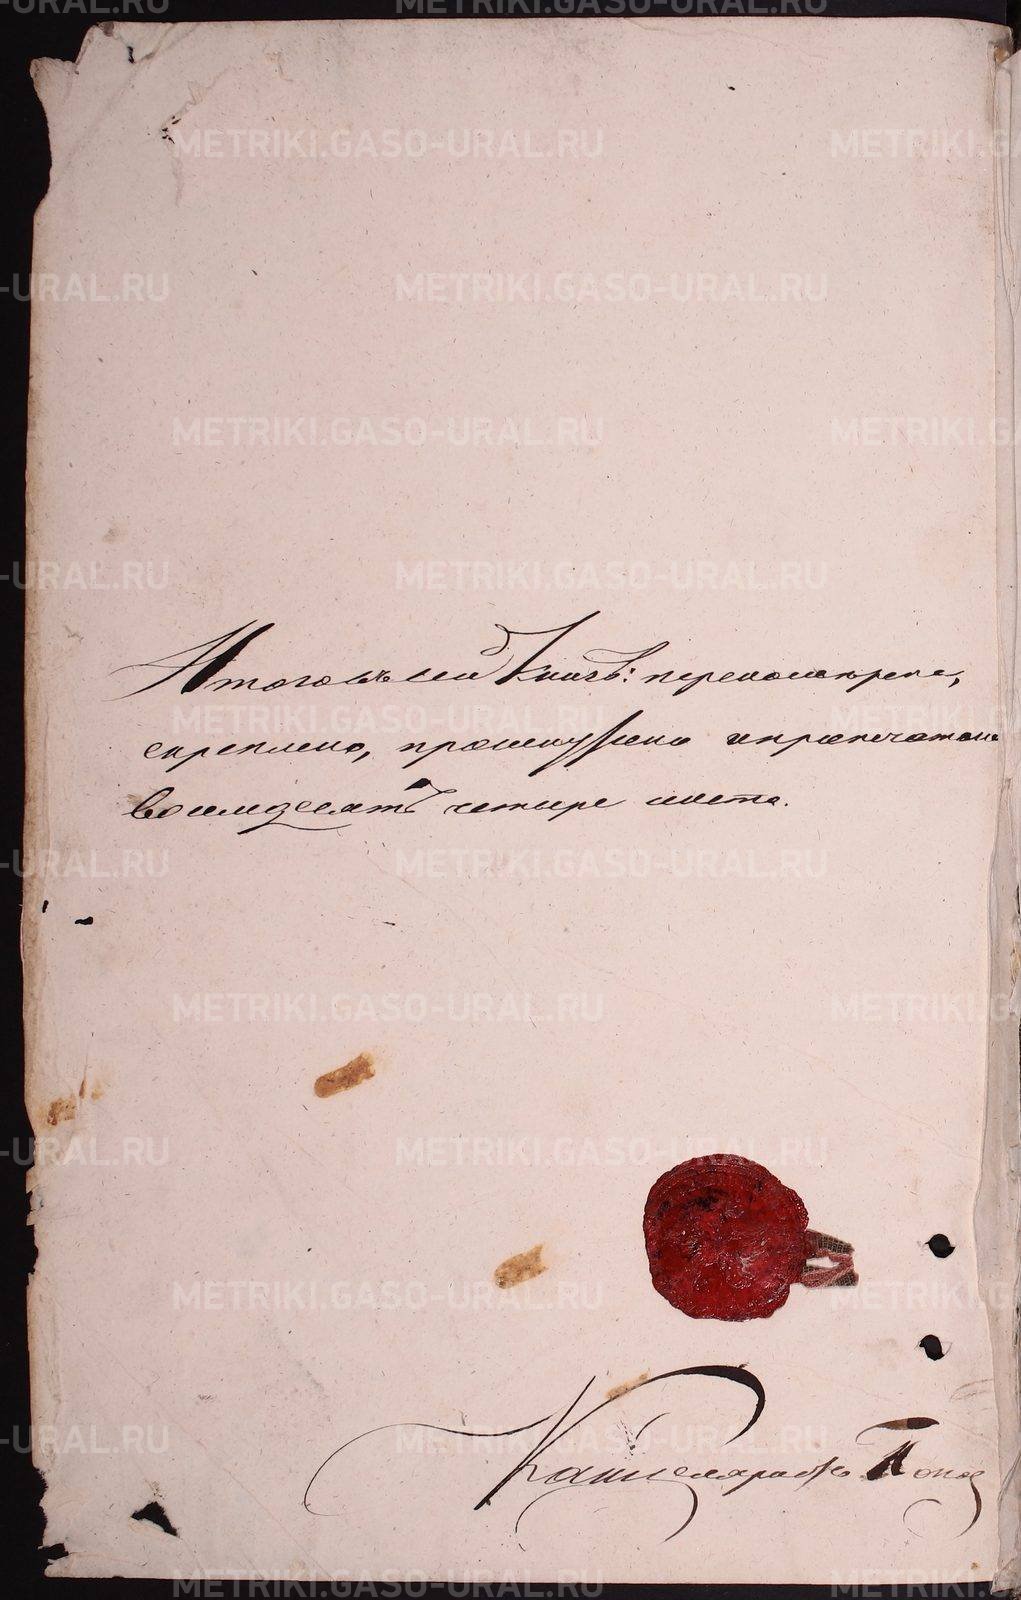 Итого въ сей книгѣ: переномерено,
скреплено, прошнуровано и пропечатано
восимдесятъ четыре листа.
Канцеляристъ Попов
METRIKI.GASO-URAL.RU